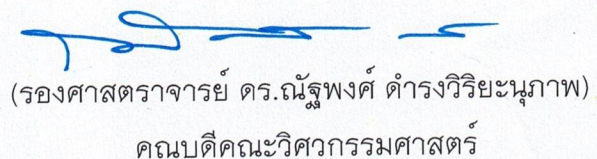 (รองศาสตราจารย์ ดร.ณัฐพงศ์ ดำรงวิริยะนุภาพ)
คณบดีคณะวิศวกรรมศาสตร์